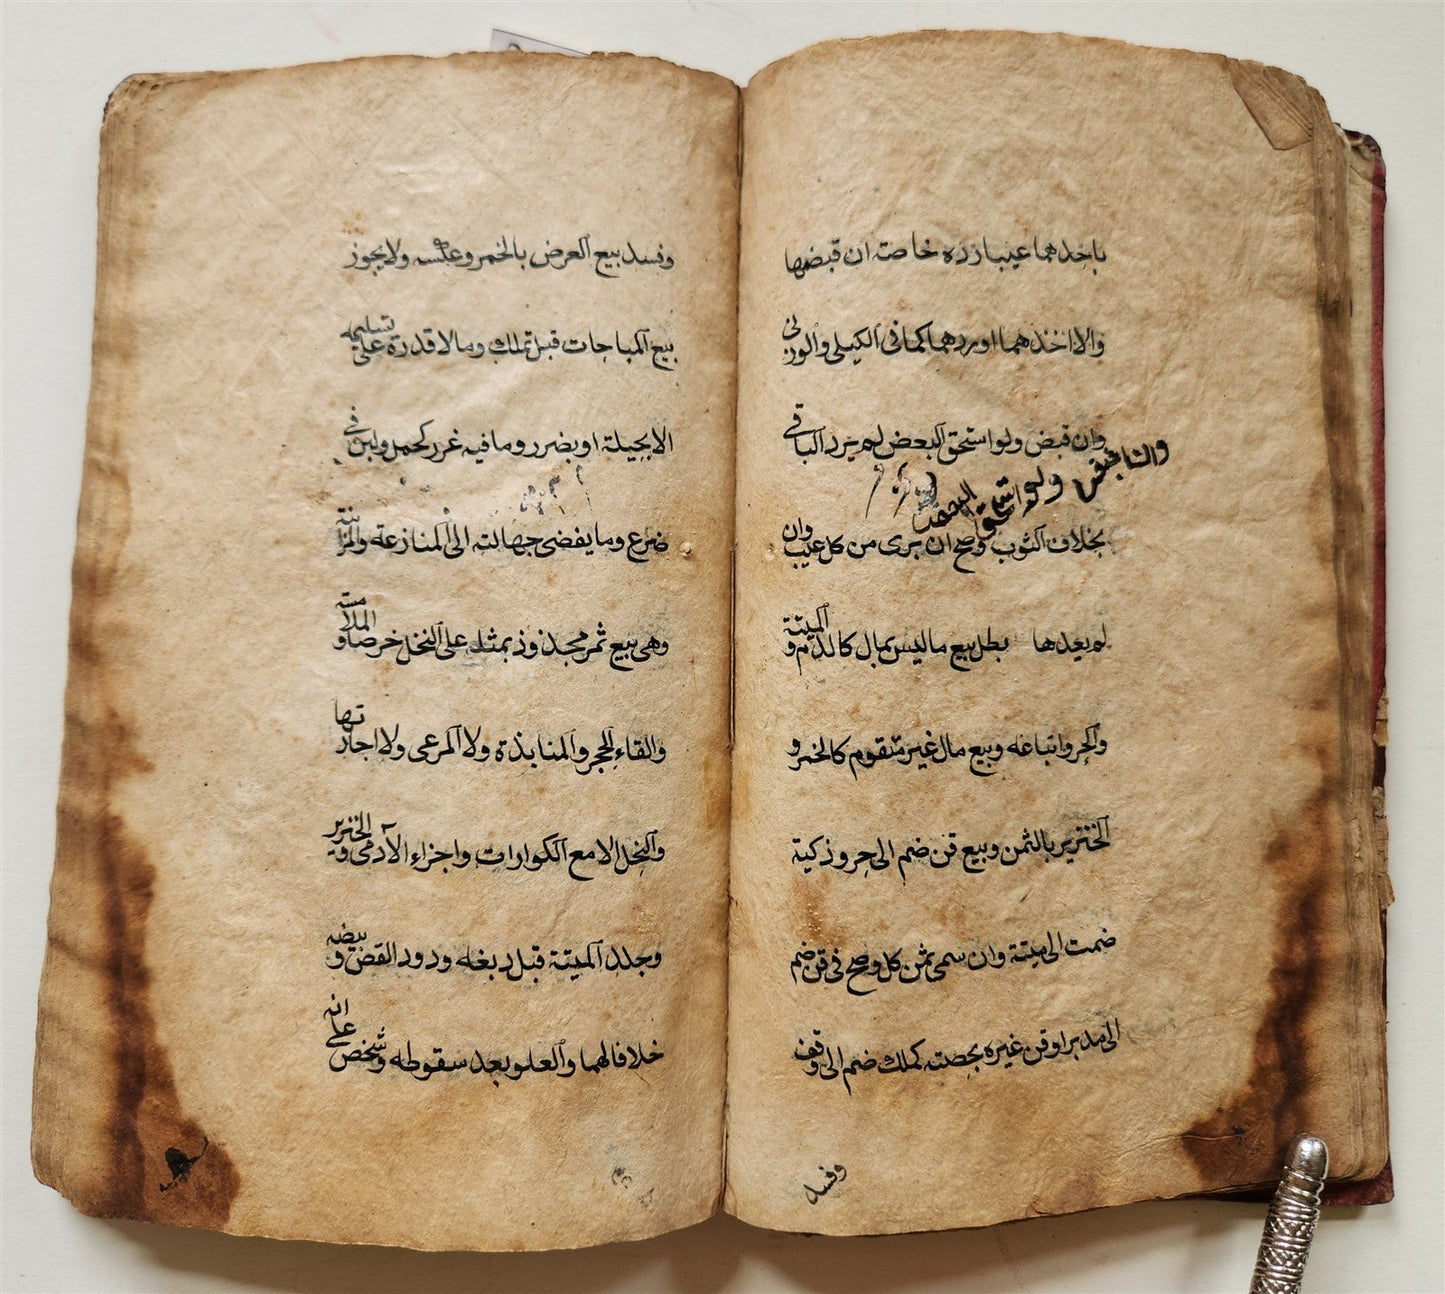 باحدهما عيبا رده خاصة ان قبضها
والا اخذهما او ردهما كما فى الكيلى والوزنى
وان قبض ولو استحق البعض لم يرد الباقى
والتا قبض ولو استحق البعض
بخلاف الثوب وصح ان برى من كل عيب وان
لم يعدها بطل بيع ما ليس بمال كالدم والميتة
والحر واتباعه وبيع مال غير متقوم كالخمر و
الخنزير بالثمن وبيع قن ضم الى حر وذكية
ضمت الى ميتة وان سمى ثمن كل وصح فى قن ضم
الى مدبر او قن غيره بحصته كملك ضم الى وقف
وفسد
وفسد بيع العرض بالخمر وعكسه ولا يجوز
بيع المباحات قبل تملك وما لا قدرة على تسليمه
الا بحيلة او بضرر وما فيه غرر كحمل ولبن فى
ضرع وما يفضى جهالته الى المنازعة والمزابنة
وهى بيع ثمر مجذوذ بمثله على النخل خرصا والملامسة
والقاء الحجر والمنابذة ولا المرعى ولا اجارتها
والنحل الا مع الكوارات واجزاء الآدمى والخنزير
وجلد الميتة قبل دبغه ودود القز وبيضه
خلافا لهما والعلو بعد سقوطه وشخص على انه